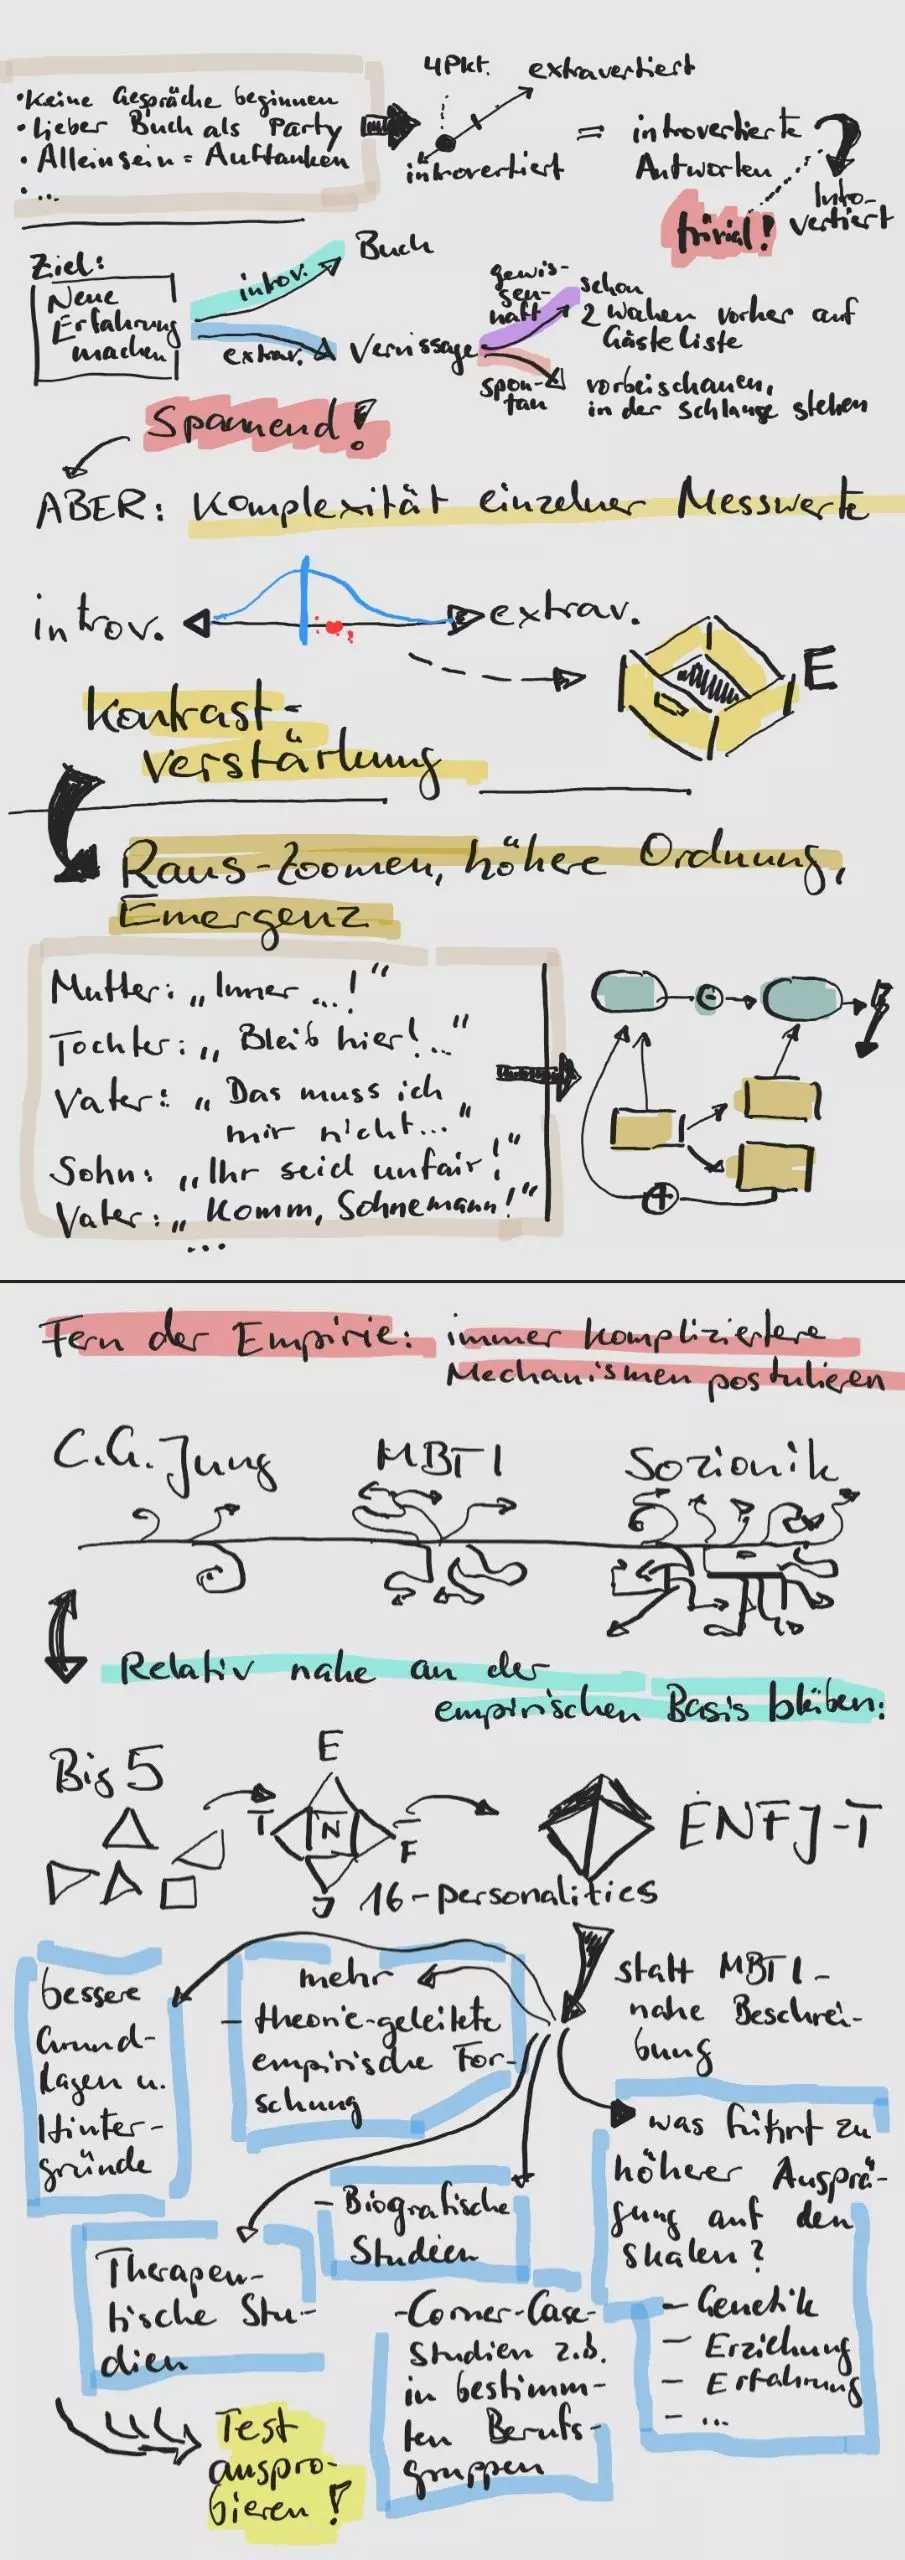 • Keine Gespräche beginnen
• Lieber Buch als Party
• Alleinsein = Auftanken
• ...
4 Pkt.
extravertiert
introvertiert
= introvertierte
Antworten
?
Intro-
vertiert
trivial!
Ziel:
Neue
Erfahrung
machen
introv.
Buch
extrav.
Vernissage
gewis-
sen-
haft
schon
2 Wochen vorher auf
Gästeliste
spon-
tan
vorbeischauen,
in der Schlange stehen
Spannend!
ABER: Komplexität einzelner Messwerte
introv.
extrav.
E
Kontrast-
verstärkung
Raus-Zoomen, höhere Ordnung,
Emergenz
Mutter: „Immer ...!“
Tochter: „Bleib hier!...“
Vater: „Das muss ich
mir nicht...“
Sohn: „Ihr seid unfair!“
Vater: „Komm, Sohnemann!“
...
-
+
Fern der Empirie: immer kompliziertere
Mechanismen postulieren
C.G. Jung
MBTI
Sozionik
Relativ nahe an der
empirischen Basis bleiben:
Big 5
E
T
N
F
J
16-personalities
ENFJ-T
statt MBTI-
nahe Beschrei-
bung
bessere
Grund-
lagen u.
Hinter-
gründe
mehr
- theorie-geleitete
empirische For-
schung
was führt zu
höherer Ausprä-
gung auf den
Skalen?
- Genetik
- Erziehung
- Erfahrung
- ...
- Biografische
Studien
Therapeu-
tische Stu-
dien
- Corner-Case-
Studien z.B.
in bestimm-
ten Berufs-
gruppen
Test
auspro-
bieren!